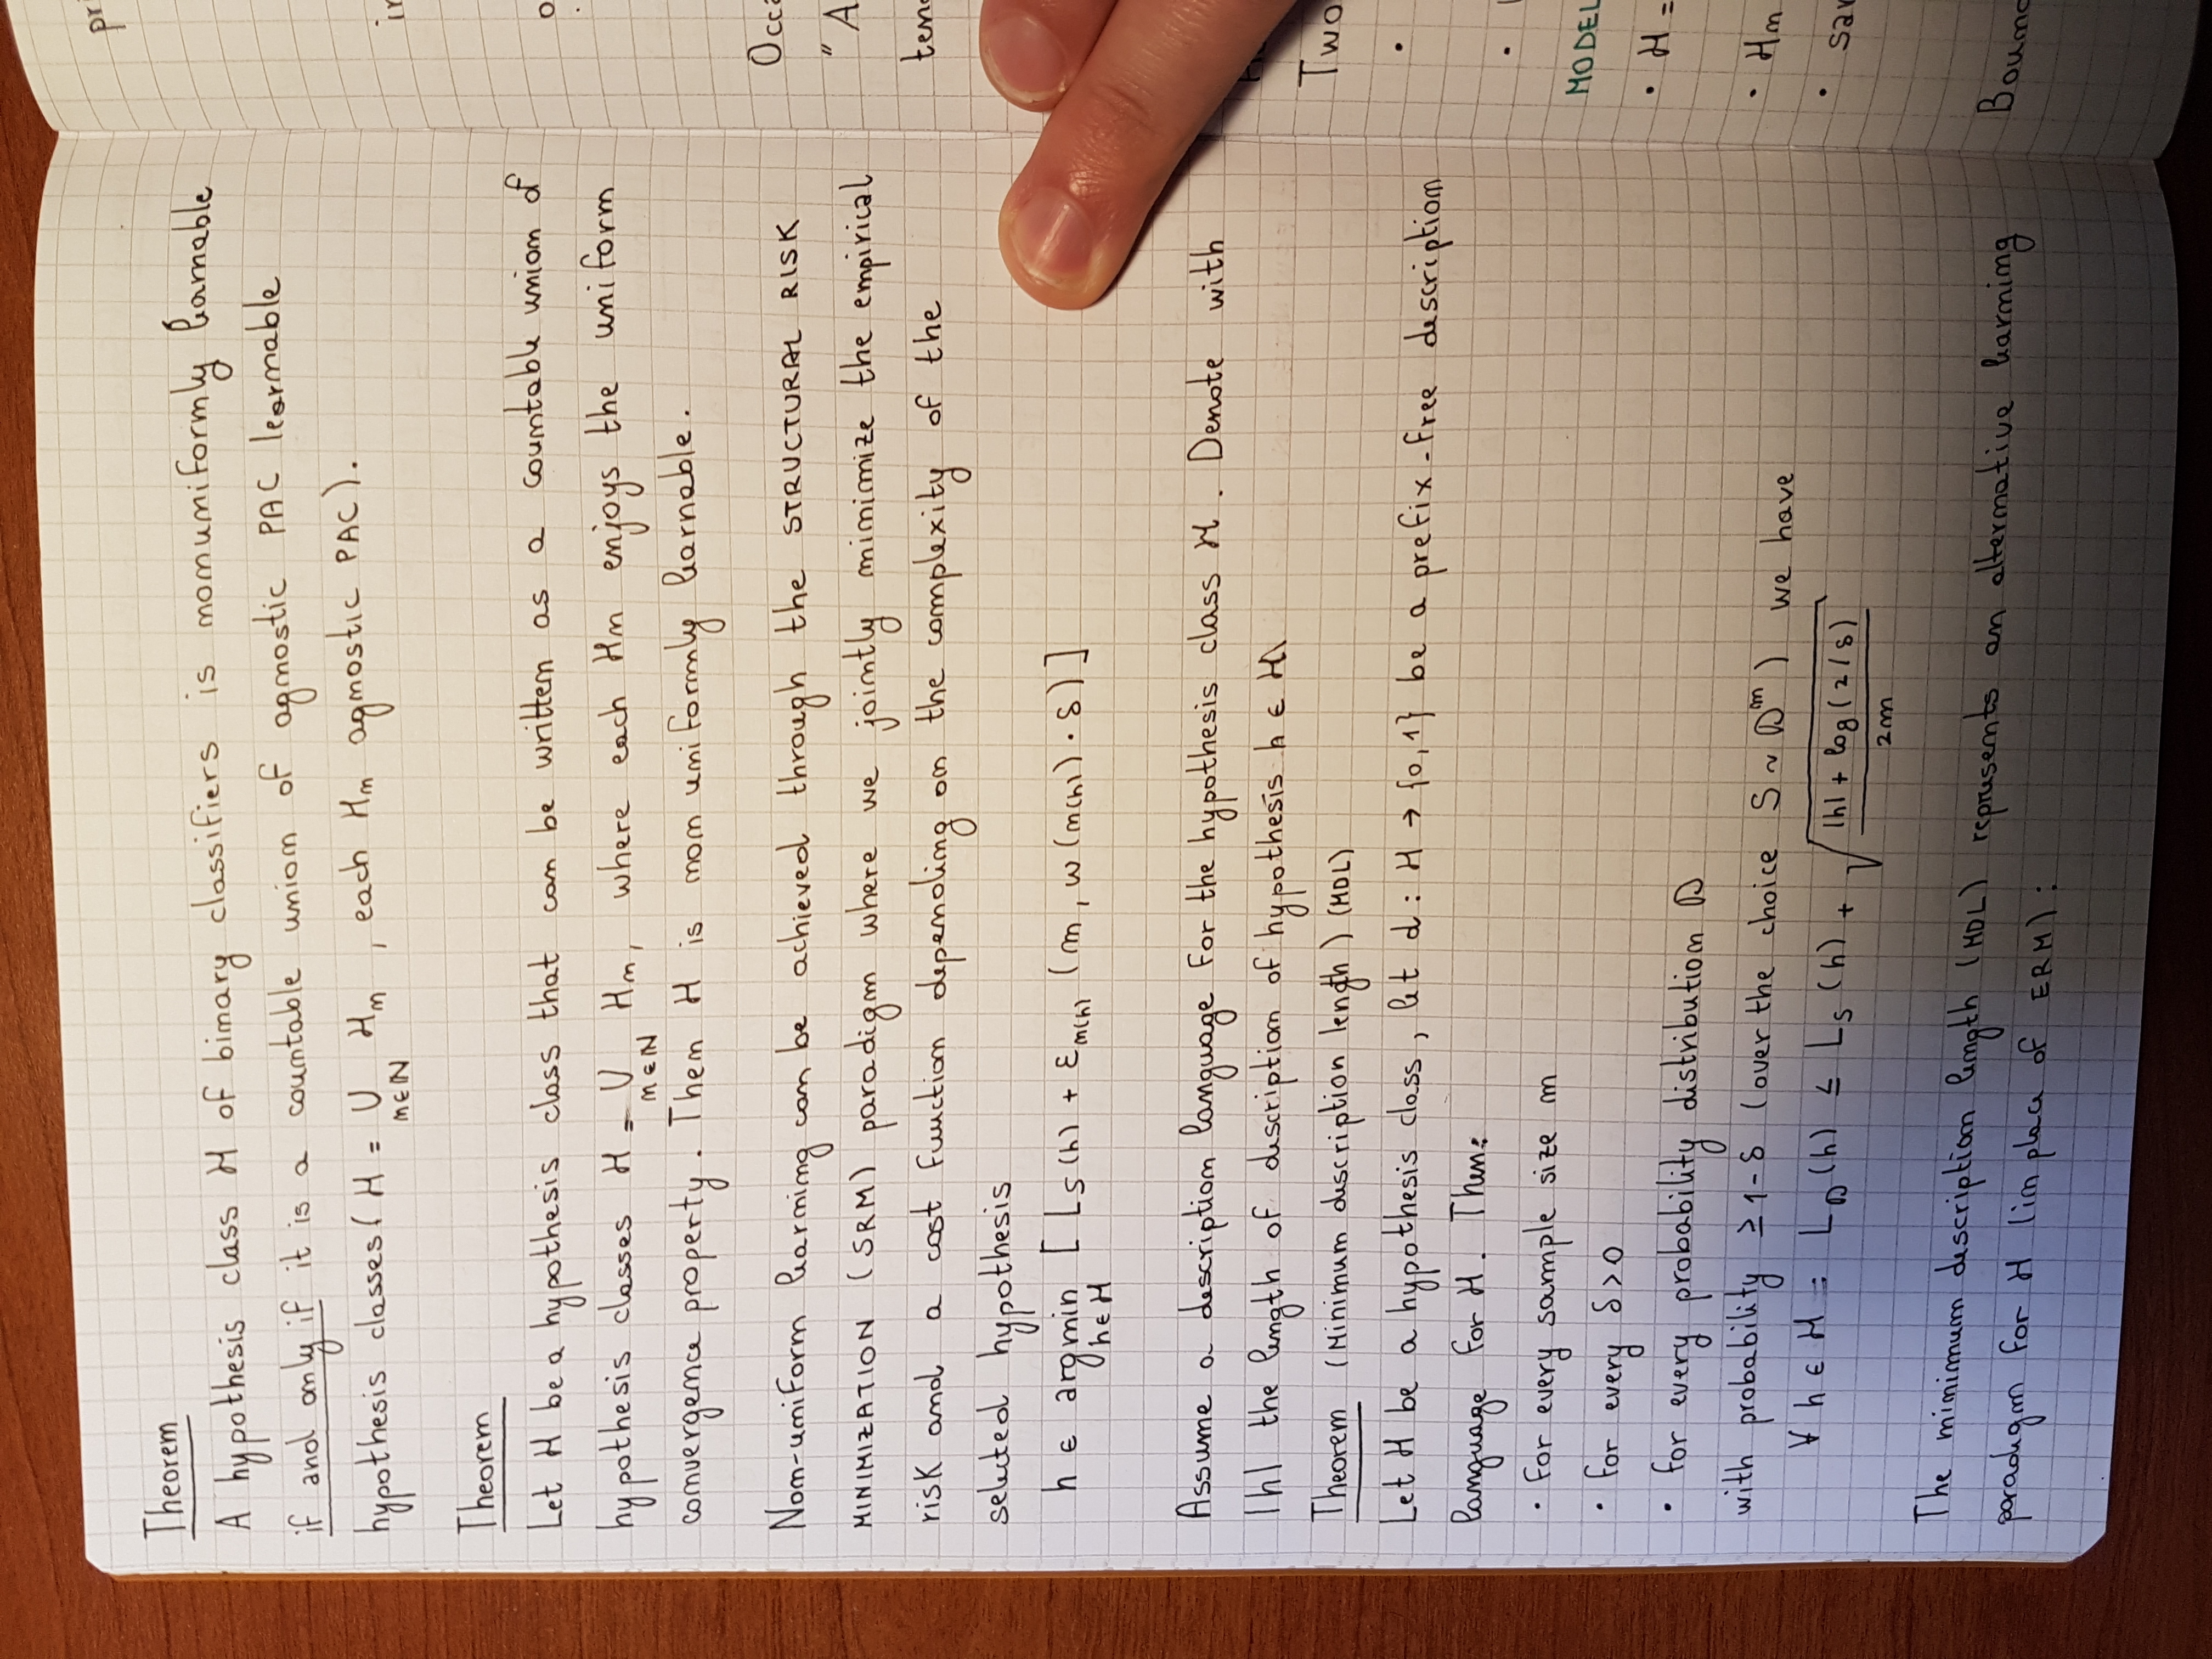 Theorem
A hypothesis class H of binary classifiers is nonuniformly learnable
if and only if it is a countable union of agnostic PAC learnable
hypothesis classes ( H = ∪ Hn , each Hn agnostic PAC ).
n∈ℕ
Theorem
Let H be a hypothesis class that can be written as a countable union of
hypothesis classes H = ∪ Hn, where each Hn enjoys the uniform
n∈ℕ
convergence property. Then H is non uniformly learnable.
Non-uniform learning can be achieved through the STRUCTURAL RISK
MINIMIZATION (SRM) paradigm where we jointly minimize the empirical
risk and a cost function depending on the complexity of the
selected hypothesis
h ∈ argmin [ LS(h) + εn(h) (m, w(n(h)) · δ) ]
h∈H
Assume a description language for the hypothesis class H. Denote with
|h| the length of description of hypothesis h ∈ H
Theorem (Minimum description length) (MDL)
Let H be a hypothesis class, let d : H → {0,1} be a prefix-free description
language for H. Then:
· for every sample size m
· for every δ>0
· for every probability distribution D
with probability ≥ 1-δ (over the choice S ~ D^m ) we have
∀ h ∈ H = L_D(h) ≤ L_S(h) + √(|h| + log(2/δ)
2m
The minimum description length (MDL) represents an alternative learning
paradigm for H (in place of ERM):
Two
MODEL
· H =
· Hn